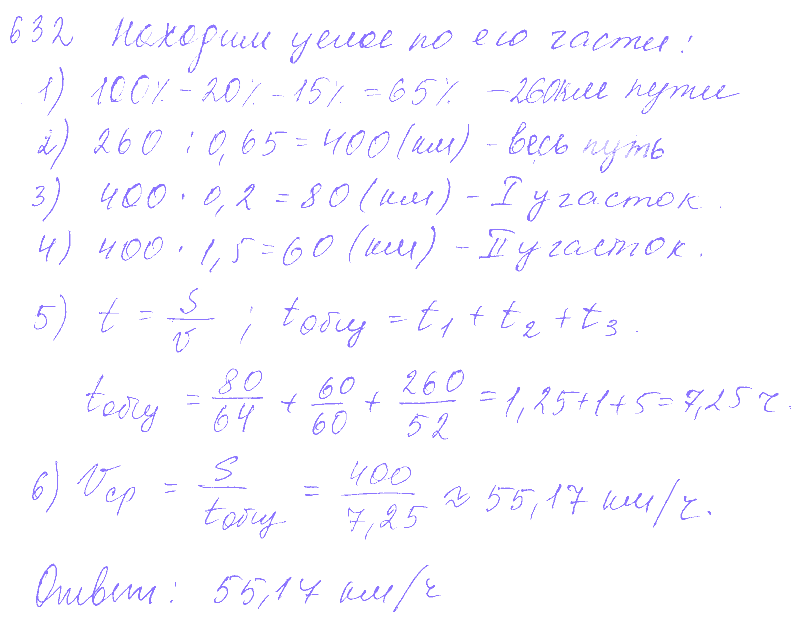 632 Находим целое по его части:
1) 100% - 20% - 15% = 65% - 260км пути
2) 260 : 0,65 = 400 (км) - весь путь
3) 400 · 0,2 = 80 (км) - I участок.
4) 400 · 1,5 = 60 (км) - II участок.
5) t = S/v ; tобщ = t1 + t2 + t3.
tобщ = 80/64 + 60/60 + 260/52 = 1,25+1+5=7,25 ч.
6) Vср = S/tобщ = 400/7,25 ≈ 55,17 км/ч.
Ответ: 55,17 км/ч